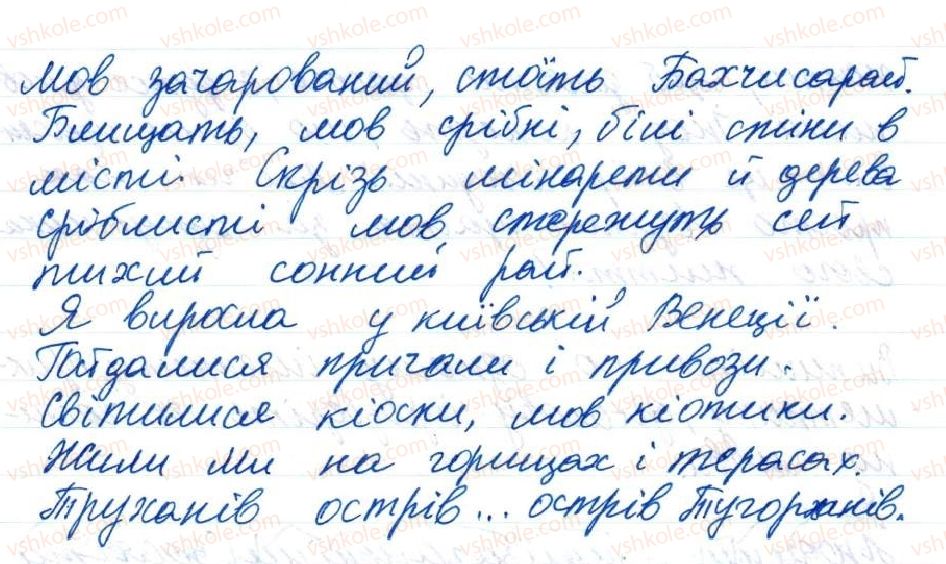 Мов зачарований, стоїть Бахчисарай.
Блищать, мов срібні, білі стіни в
місті. Скрізь мінарети й дерева
сріблисті мов стережуть сей
тихий сонний рай.
Я виросла у київській Венеції.
Гойдалися причали і привози.
Світилися кіоски, мов кіотики.
Жили ми на горищах і терасах.
Труханів острів... острів Тугорханів.